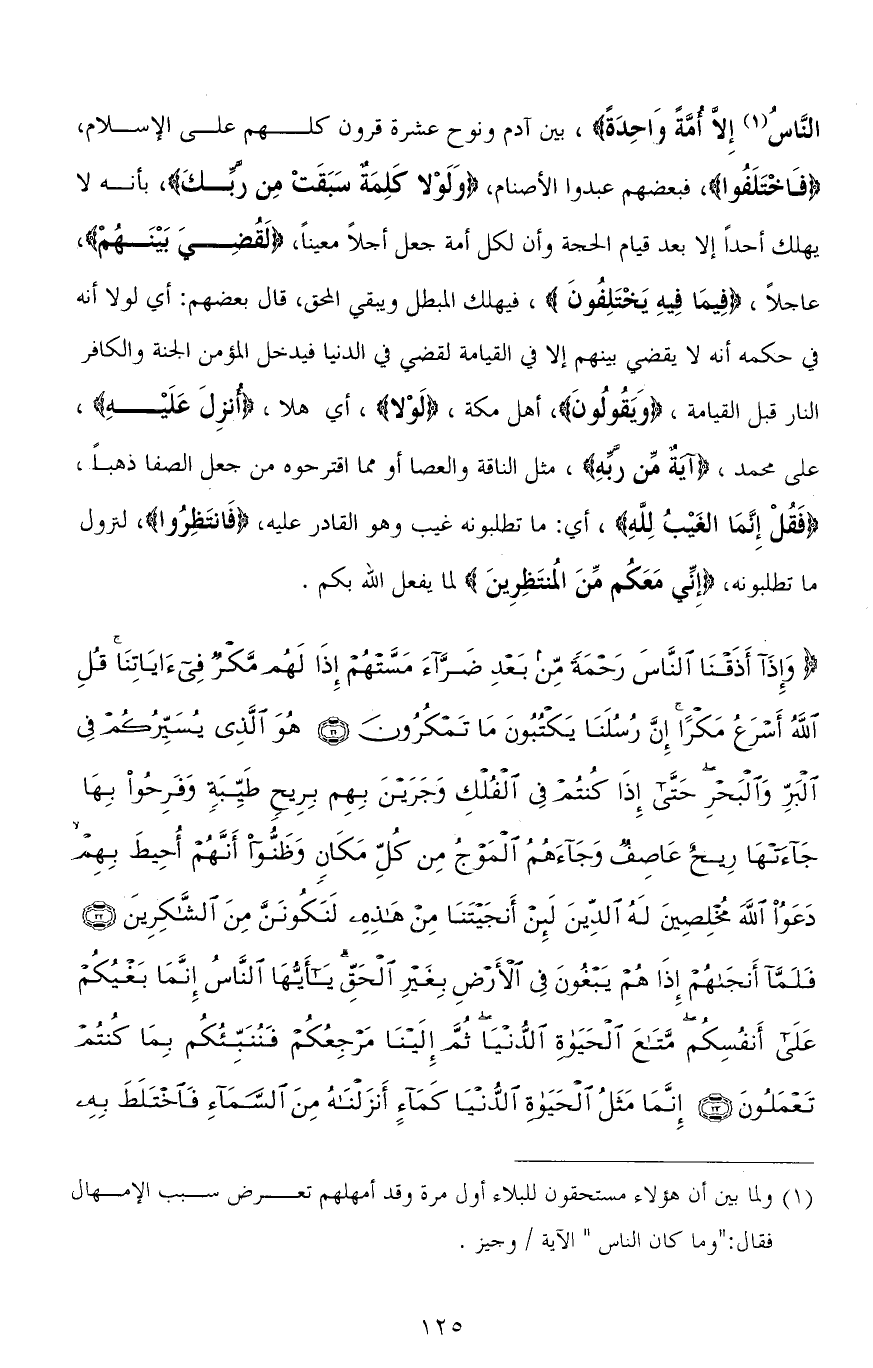 النَّاسُ(١) إِلاَّ أُمَّةً وَاحِدَةً﴾ ، بين آدم ونوح عشرة قرون كلهم على الإسلام،
﴿فَاخْتَلَفُوا﴾، فبعضهم عبدوا الأصنام، ﴿وَلَوْلا كَلِمَةٌ سَبَقَتْ مِن رَّبِّكَ﴾، بأنه لا
يهلك أحداً إلا بعد قيام الحجة وأن لكل أمة جعل أجلاً معيناً، ﴿لَقُضِيَ بَيْنَهُمْ﴾،
عاجلاً ، ﴿فِيمَا فِيهِ يَخْتَلِفُونَ ﴾ ، فيهلك المبطل ويبقي المحق، قال بعضهم: أي لولا أنه
في حكمه أنه لا يقضي بينهم إلا في القيامة لقضي في الدنيا فيدخل المؤمن الجنة والكافر
النار قبل القيامة ، ﴿وَيَقُولُونَ﴾، أهل مكة ، ﴿لَوْلا﴾ ، أي هلا ، ﴿أُنزِلَ عَلَيْهِ﴾ ،
على محمد ، ﴿آيَةٌ مِّن رَّبِّهِ﴾ ، مثل الناقة والعصا أو مما اقترحوه من جعل الصفا ذهباً ،
﴿فَقُلْ إِنَّمَا الغَيْبُ لِلَّهِ﴾ ، أي: ما تطلبونه غيب وهو القادر عليه، ﴿فَانتَظِرُوا﴾، لنزول
ما تطلبونه، ﴿إِنِّي مَعَكُم مِّنَ الْمُنتَظِرِينَ ﴾ لما يفعل الله بكم .
﴿ وَإِذَآ أَذَقْنَا ٱلنَّاسَ رَحْمَةً مِّنۢ بَعْدِ ضَرَّآءَ مَسَّتْهُمْ إِذَا لَهُم مَّكْرٌ فِىٓ ءَايَاتِنَا ۚ قُلِ
ٱللَّهُ أَسْرَعُ مَكْرًا ۚ إِنَّ رُسُلَنَا يَكْتُبُونَ مَا تَمْكُرُونَ ﴿٢١﴾ هُوَ ٱلَّذِى يُسَيِّرُكُمْ فِى
ٱلْبَرِّ وَٱلْبَحْرِ ۖ حَتَّىٰٓ إِذَا كُنتُمْ فِى ٱلْفُلْكِ وَجَرَيْنَ بِهِم بِرِيحٍ طَيِّبَةٍ وَفَرِحُوا۟ بِهَا
جَآءَتْهَا رِيحٌ عَاصِفٌ وَجَآءَهُمُ ٱلْمَوْجُ مِن كُلِّ مَكَانٍ وَظَنُّوٓا۟ أَنَّهُمْ أُحِيطَ بِهِمْ ۙ
دَعَوُا۟ ٱللَّهَ مُخْلِصِينَ لَهُ ٱلدِّينَ لَئِنْ أَنجَيْتَنَا مِنْ هَـٰذِهِۦ لَنَكُونَنَّ مِنَ ٱلشَّـٰكِرِينَ ﴿٢٢﴾
فَلَمَّآ أَنجَىٰهُمْ إِذَا هُمْ يَبْغُونَ فِى ٱلْأَرْضِ بِغَيْرِ ٱلْحَقِّ ۗ يَـٰٓأَيُّهَا ٱلنَّاسُ إِنَّمَا بَغْيُكُمْ
عَلَىٰٓ أَنفُسِكُم ۖ مَّتَـٰعَ ٱلْحَيَوٰةِ ٱلدُّنْيَا ۖ ثُمَّ إِلَيْنَا مَرْجِعُكُمْ فَنُنَبِّئُكُم بِمَا كُنتُمْ
تَعْمَلُونَ ﴿٢٣﴾ إِنَّمَا مَثَلُ ٱلْحَيَوٰةِ ٱلدُّنْيَا كَمَآءٍ أَنزَلْنَـٰهُ مِنَ ٱلسَّمَآءِ فَٱخْتَلَطَ بِهِۦ
(١) ولما بين أن هؤلاء مستحقون للبلاء أول مرة وقد أمهلهم تعرض سبب الإمهال
فقال:"وما كان الناس " الآية / وجيز .
١٢٥